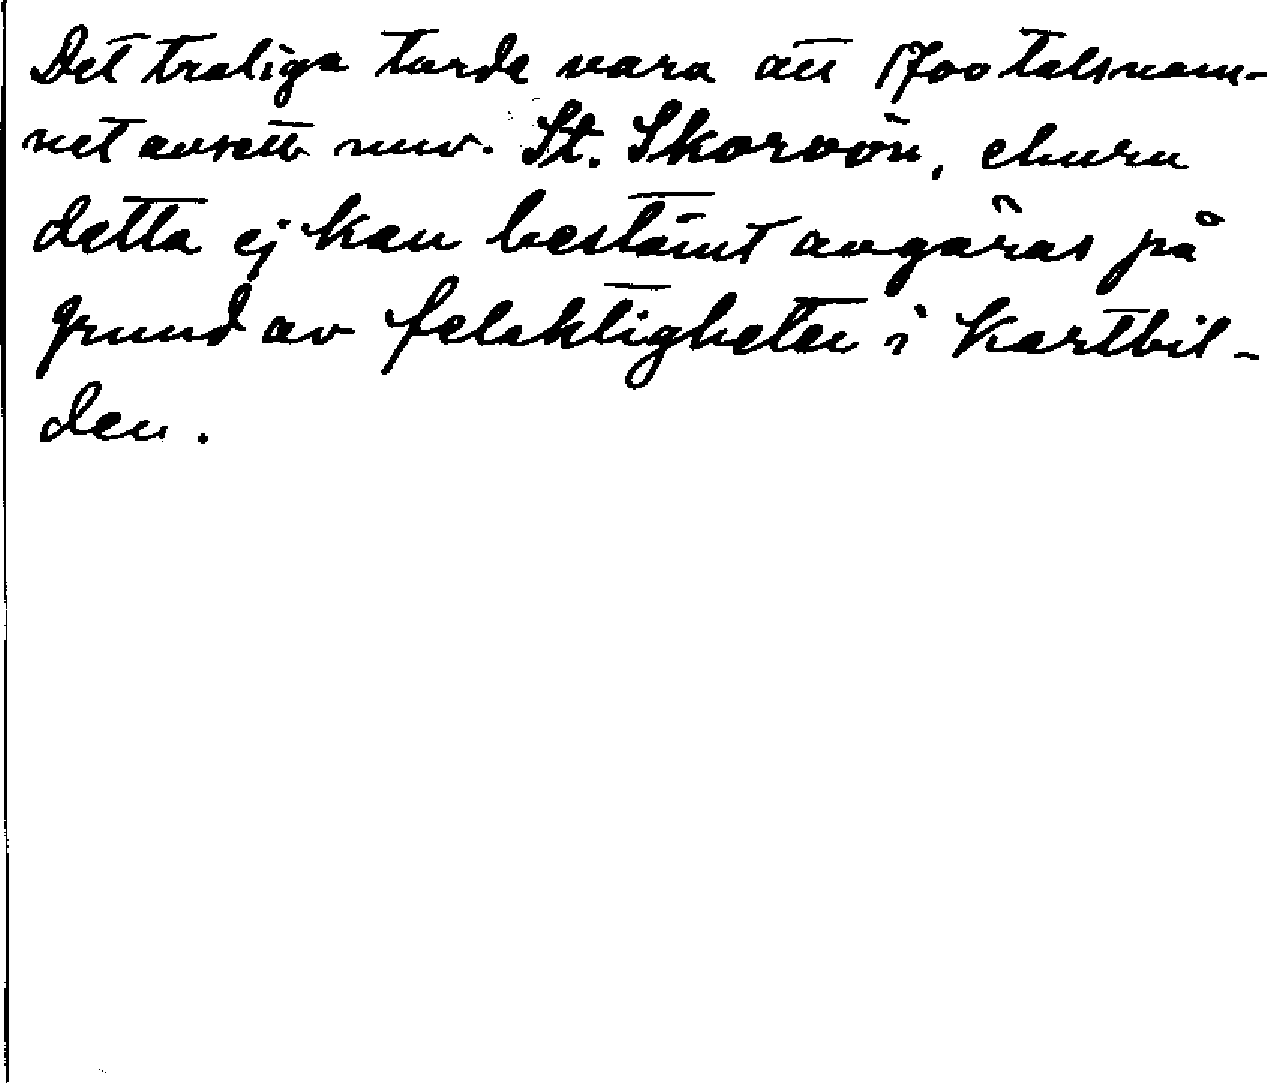 Det troliga torde vara att 1700talsnam-
net avsett nuv. St. Skorvön, ehuru
detta ej kan bestämt avgöras på
grund av felaktigheter i kartbil-
den.